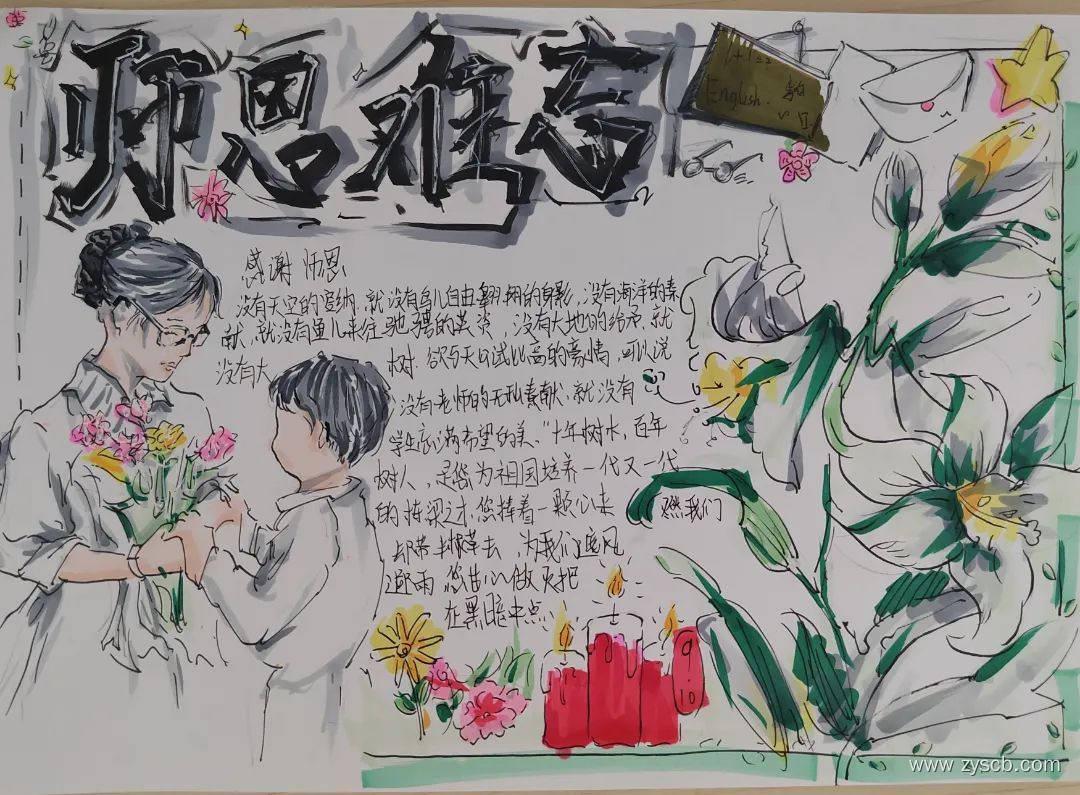 师恩难忘
1+1=2
English.
感谢师恩
没有天空的爱纳，就没有鸟儿自由翱翔的身影，没有海洋的奉
献，就没有鱼儿来往驰骋的英姿，没有大地的给予，就
没有大树，欲与天公试比高的豪情，可以说
没有老师的无私奉献，就没有
学生充满希望的美、"十年树木，百年
树人，是您为祖国培养一代又一代
的栋梁之才，您捧着一颗心来
却带半根草去，为我们遮风
避雨 您甘心做火把
在黑暗中点
燃我们
9.10
www.zyscb.com